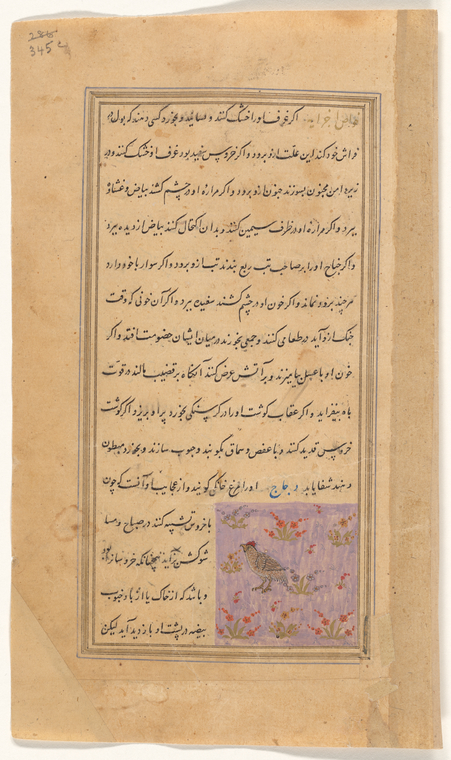 345
خواص اجزایه اگر عرف او را خشک کنند و بسایند و بخورد کسی دهند که بول در
فراش خود کند این علت ازو برود و اگر خروس سفید بود عرف او خشک کنند و در
زیره امن مجنون بسوزند جنون ازو برود و اگر مراره او در چشم کشند بیاض و غشاوه
ببرد و اگر مراره او در ظرف سیمین کنند و بدان اکتحال کنند بیاض از دیده ببرد
و اگر جناح او را بر صاحب تب ربع بندند تب ازو برود و اگر سوار با خود دارد
هر چند برود نماند و اگر خون او در چشم کشند سفیده ببرد و اگر آن خونی که وقت
جنک ازو آید در طعامی کنند و جمعی بخورند در میان ایشان خصومت افتد و اگر
خون او با عسل بیامیزند و بر آتش عرض کنند آنگاه بر قضیب مالند در قوت
باه بیفزاید و اگر عقاب گوشت او را در گرسنگی بخورد پر او بریزد اگر گوشت
خروس قدید کنند و با عفص و سماق بکوبند و حبوب سازند و بخورد مبطون
دهند شفا یابد دجاج او را مرغ خانگی گویند و از عجایب او آنست که چون
با خروس تشبه کنند در صیاح و مسا
شوکش بزاید همچنانکه خروسان را بود
و باشد که از خاک یا از باد حبوب
بیضه در پشت او باز دید آید لیکن